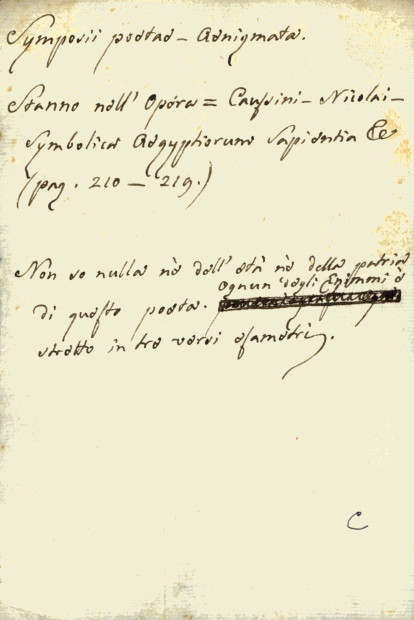 Symposii poetae - Aenigmata.
Stanno nell' Opera = Caussini - Nicolai -
Symbolica Aegyptiorum Sapientia &c
(pag. 210 — 219.)
Non so nulla nè dell' età nè della patria
ognun degli Enimmi è
di questo poeta.
stretto in tre versi esametri.
C